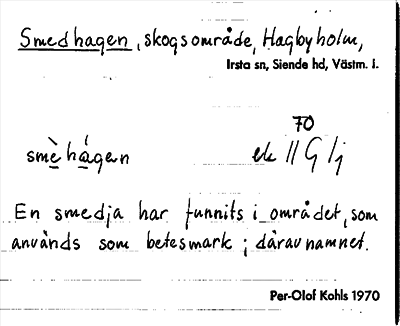 Smedhagen, skogsområde, Hagbyholm,
Irsta sn, Siende hd, Västm. l.
70
smèhágen ek 11 G
En smedja har funnits i området, som
används som betesmark; därav namnet.
Per-Olof Kohls 1970